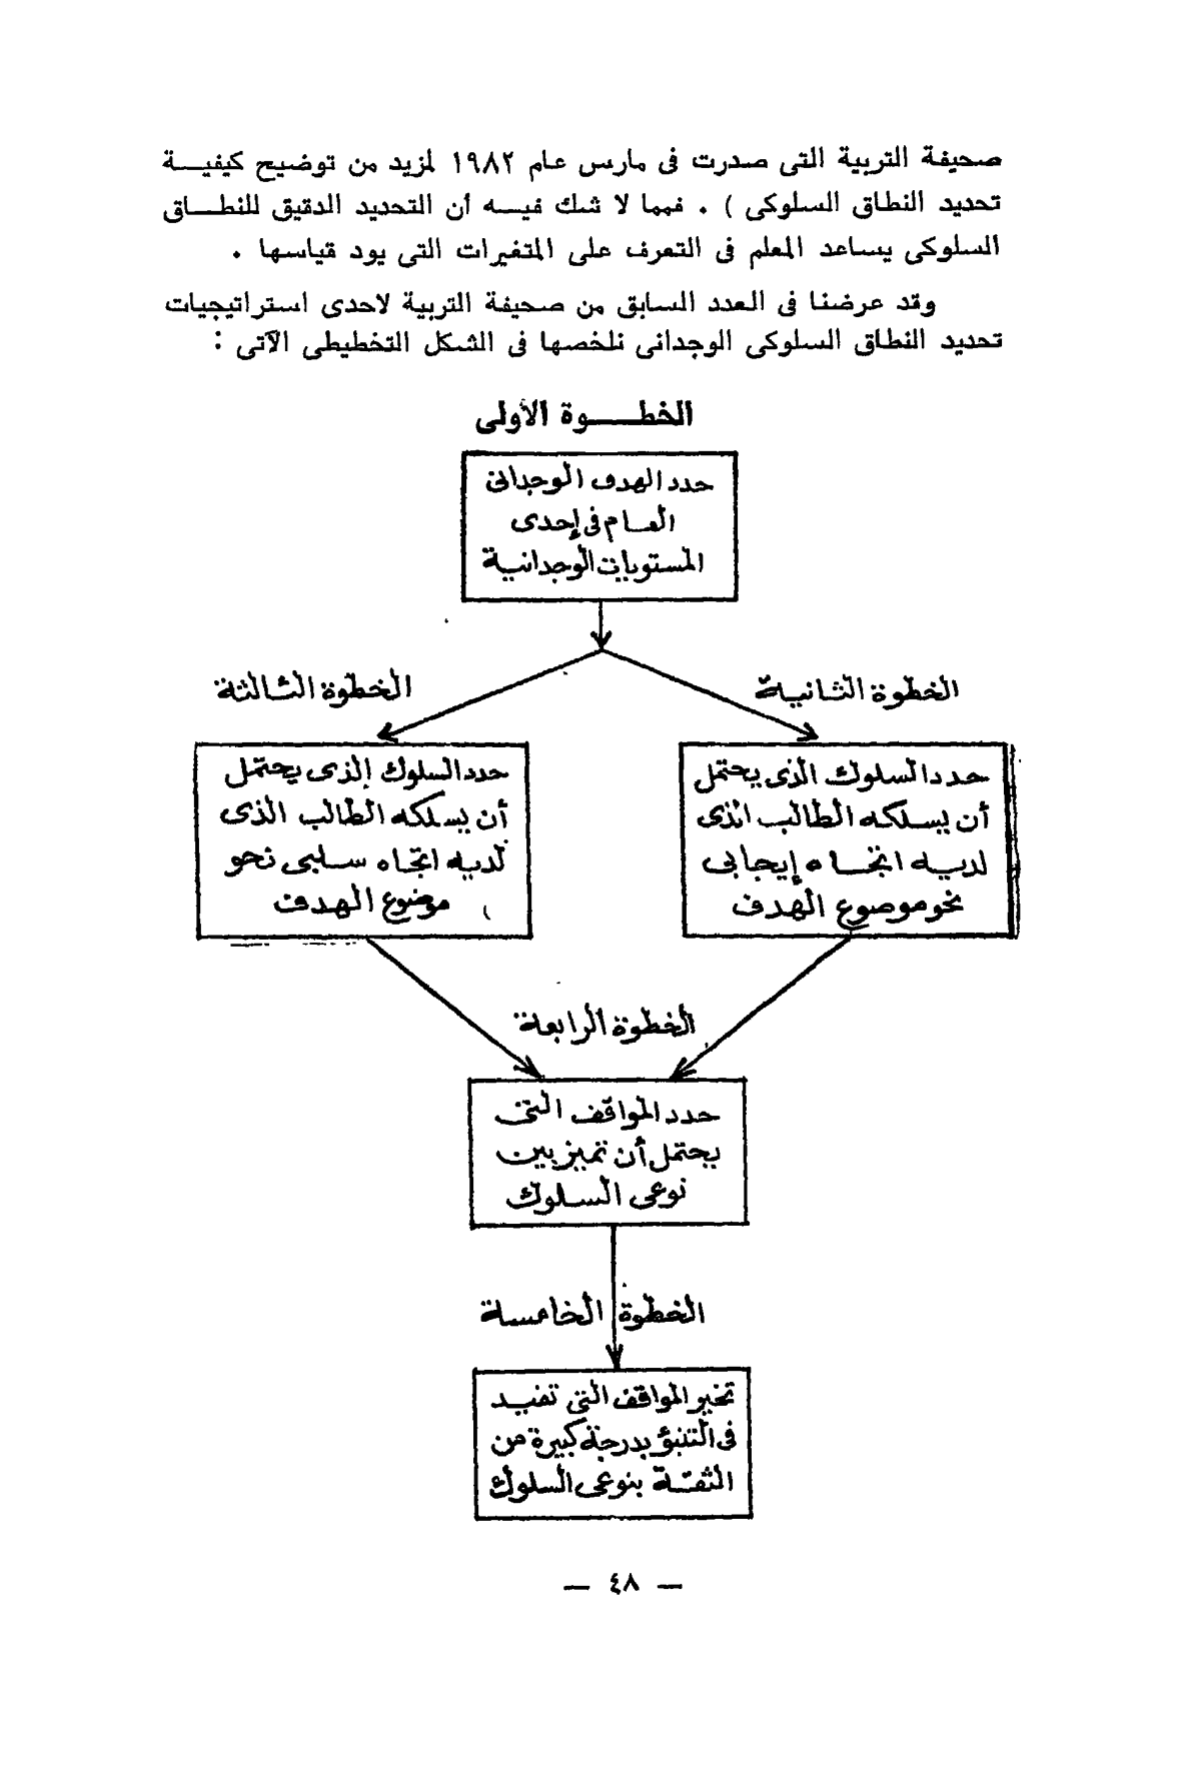 صحيفة التربية التى صدرت فى مارس عام ١٩٨٢ لمزيد من توضيح كيفيـــة
تحديد النطاق السلوكى ) . فمما لا شك فيـــه أن التحديد الدقيق للنطـــاق
السلوكى يساعد المعلم فى التعرف على المتغيرات التى يود قياسها .
وقد عرضنا فى العدد السابق من صحيفة التربية لاحدى استراتيجيات
تحديد النطاق السلوكى الوجدانى نلخصها فى الشكل التخطيطى الآتى :
الخطـــوة الأولى
حدد الهدف الوجدانى
العـام فى إحدى
المستويات الوجدانية
الخطوة الثانية
الخطوة الثالثة
حدد السلوك الذى يحتمل
أن يسلكه الطالب الذى
لديه اتجـاه إيجابى
نحو موضوع الهدف
حدد السلوك الذى يحتمل
أن يسلكه الطالب الذى
لديه اتجاه سلبى نحو
موضوع الهدف
الخطوة الرابعة
حدد المواقف التى
يحتمل أن تميز بين
نوعى السلوك
الخطوة الخامسة
تخير المواقف التى تفيد
فى التنبؤ بدرجة كبيرة من
الثقـة بنوعى السلوك
— ٤٨ —